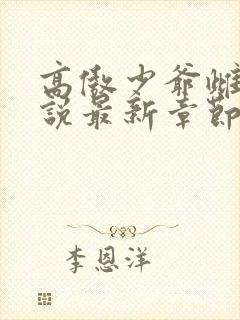 高傲少爷雌
说最新章节
李恩洋